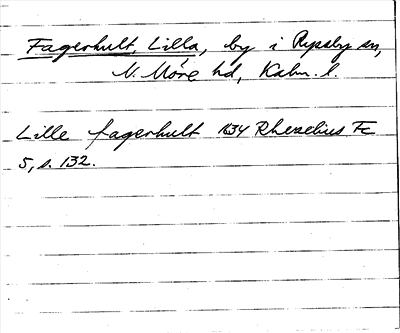 Fagerhult, Lilla, by i Ryssby sn,
N. Möre hd, Kalm. l.
Lille fagerhult 1634 Rhezelius Fc
5, s. 132.